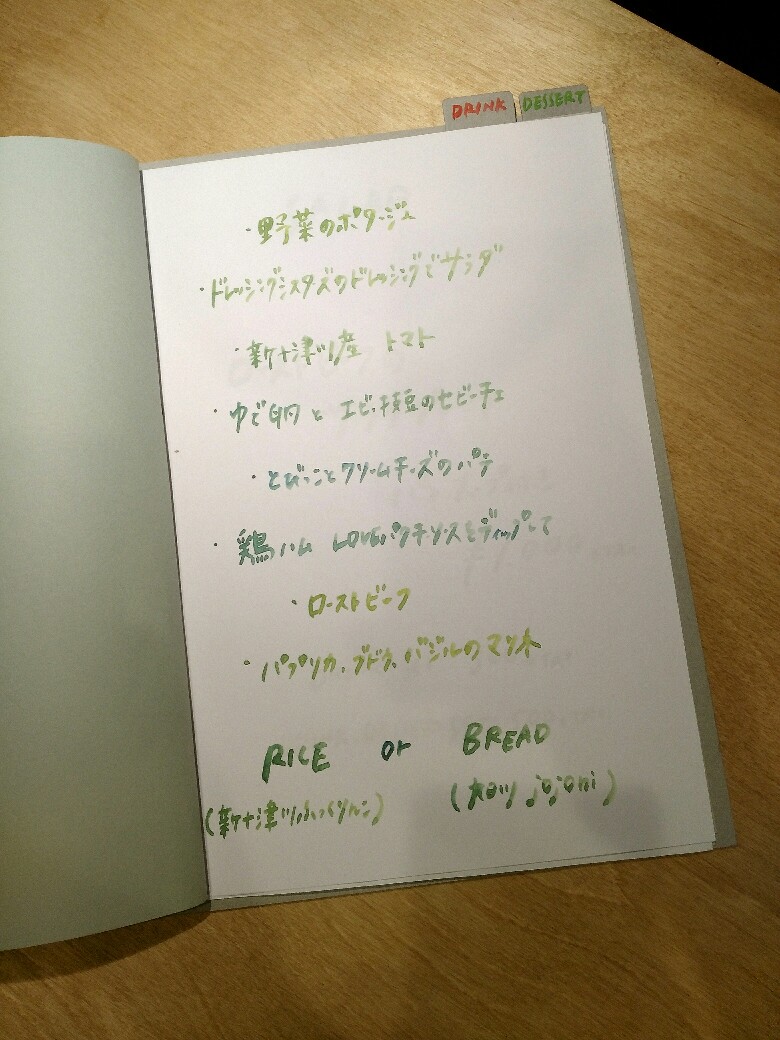 DRINK DESSERT
・野菜のポタージュ
・ドレッシングシスターズのドレッシングでサラダ
・新十津川産 トマト
・ゆで卵と エビ・枝豆のセビーチェ
・とびっことクリームチーズのパテ
・鶏ハム LOVEパクチーソースをディップして
・ローストビーフ
・パプリカ、ブドウ、バジルのマリネ
RICE or BREAD
(新十津川 (jojoni)